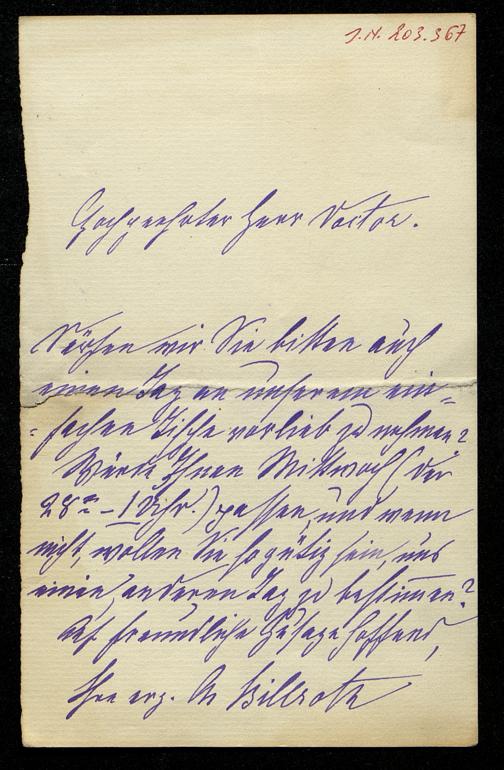 J.N. 203.367
Hochgeehrter Herr Doctor.
Dürfen wir Sie bitten auch
einen Tag an unserem ein=
=fachen Tische vorlieb zu nehmen?
Würde Ihnen Mittwoch (der
28te – 1 Uhr.) passen, und wenn
nicht, wollen Sie so gütig sein, uns
einen anderen Tag zu bestimmen?
Auf freundliche Zusage hoffend,
Ihre erg. Billroth